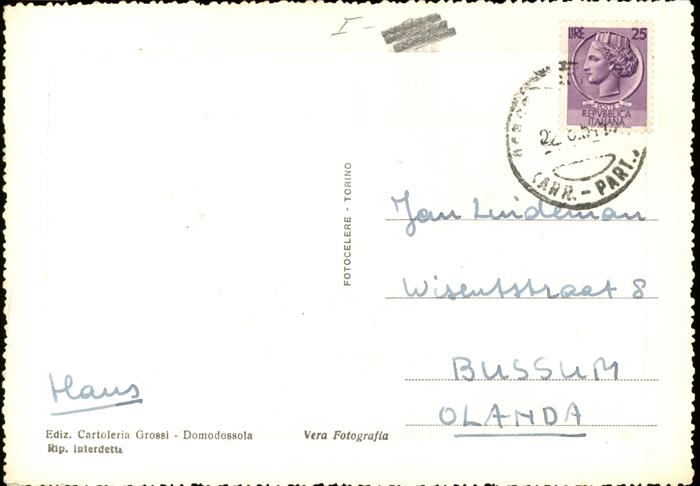 I -
LIRE 25
POSTE
REPVBBLICA
ITALIANA
ARR. - PART.
FOTOCELERE - TORINO
Jan Lindeman
Wisentstraat 8
BUSSUM
OLANDA
Hans
Ediz. Cartoleria Grossi - Domodossola
Vera Fotografia
Rip. interdetta